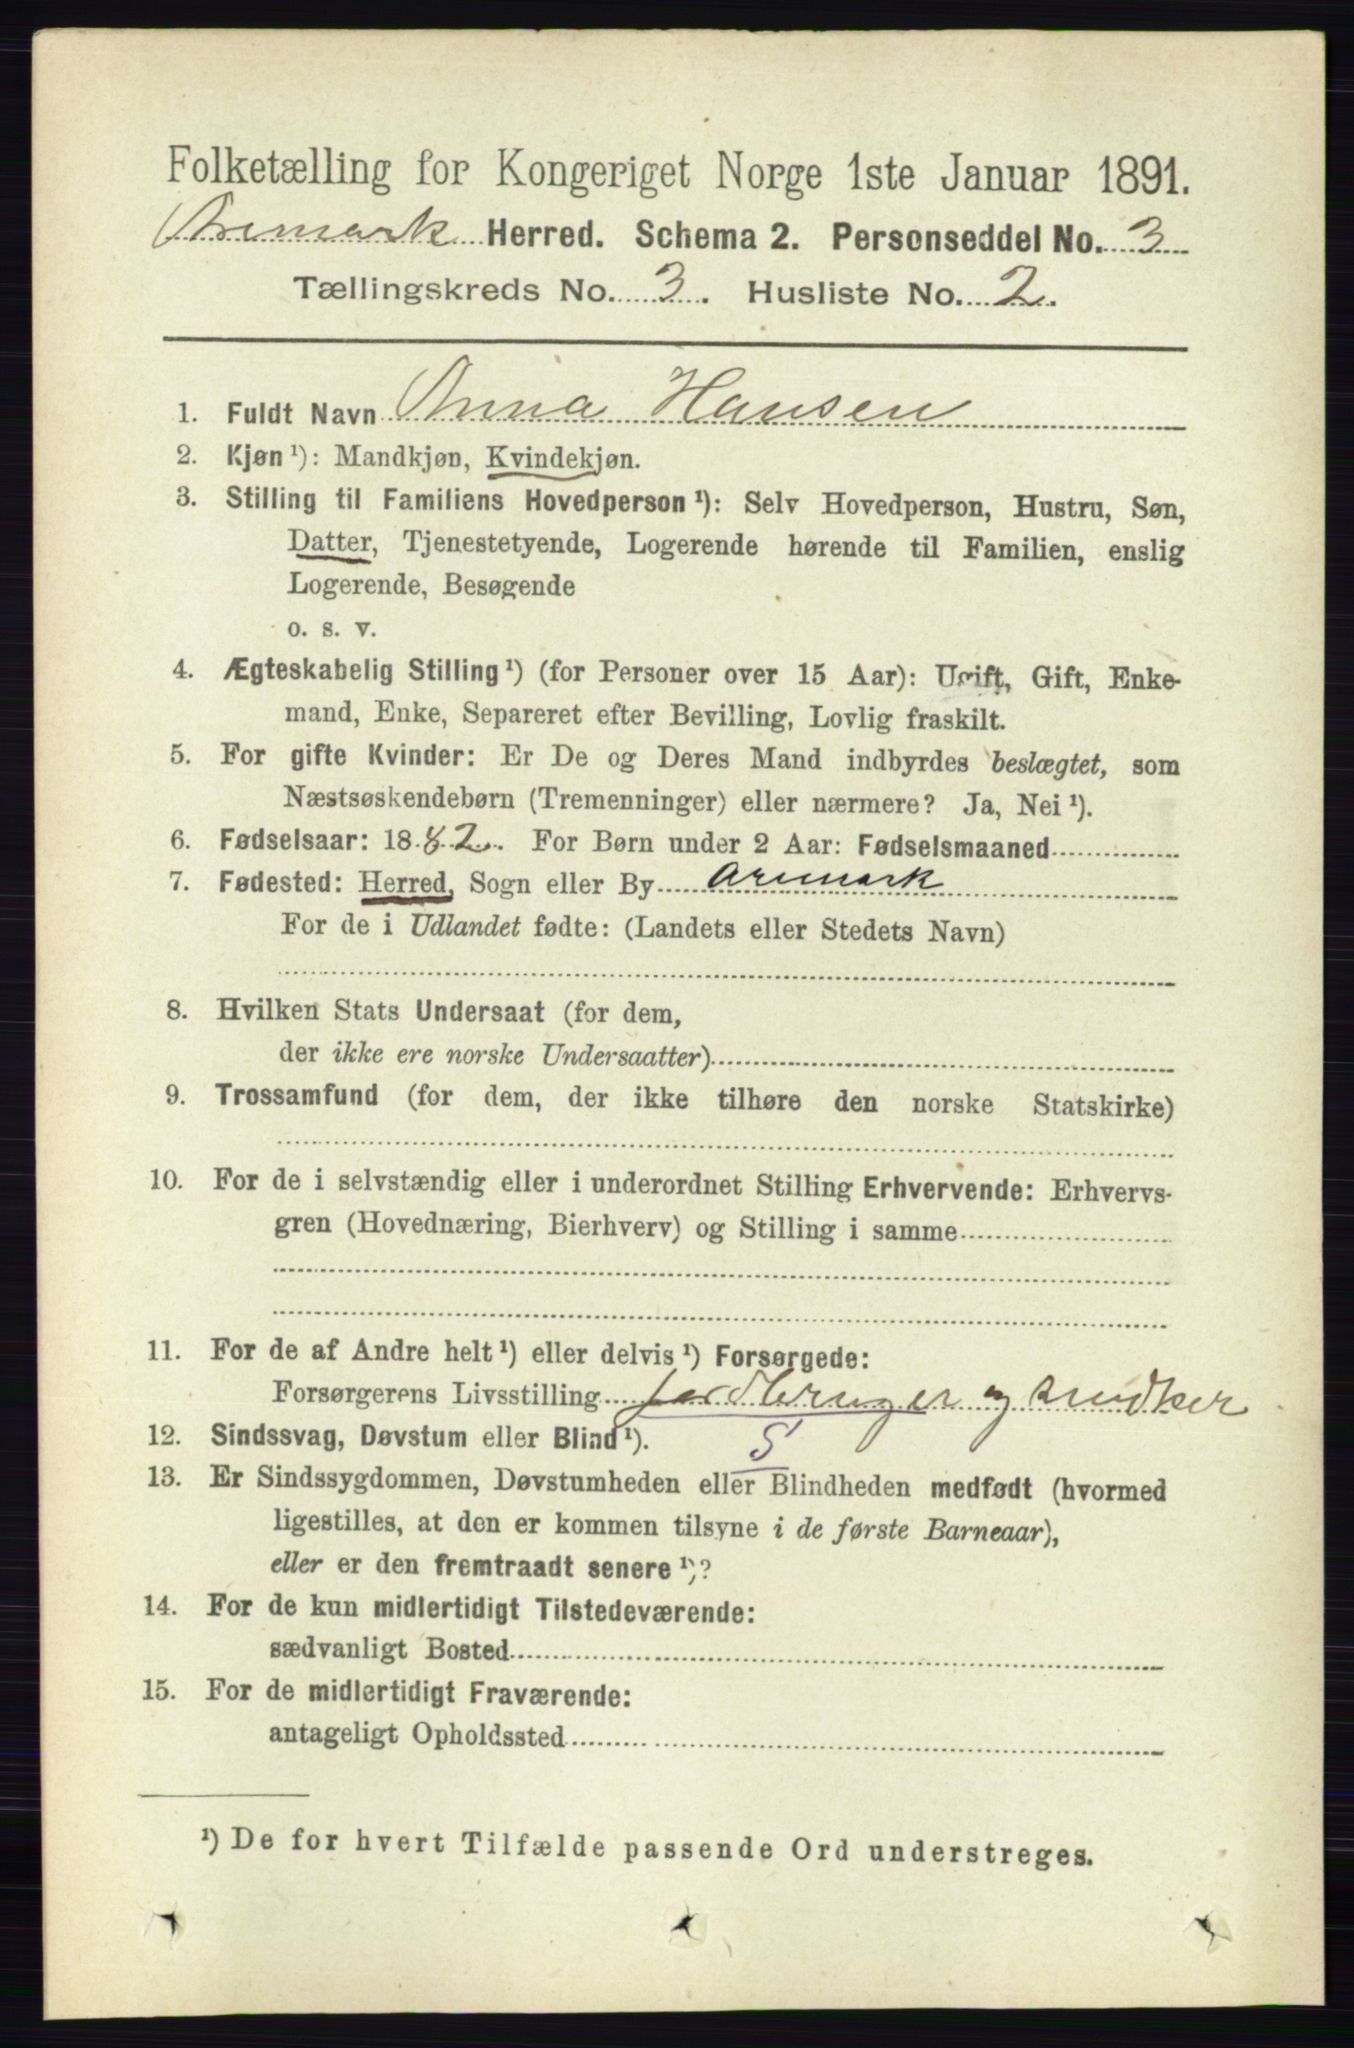 Folketælling for Kongeriget Norge 1ste Januar 1891.
Aremark Herred. Schema 2. Personseddel No. 3
Tællingskreds No. 3. Husliste No. 2.
1. Fuldt Navn Anna Hansen
2. Kjøn ¹): Mandkjøn, Kvindekjøn.
3. Stilling til Familiens Hovedperson ¹): Selv Hovedperson, Hustru, Søn,
Datter, Tjenestetyende, Logerende hørende til Familien, enslig
Logerende, Besøgende
o. s. v.
4. Ægteskabelig Stilling ¹) (for Personer over 15 Aar): Ugift, Gift, Enke-
mand, Enke, Separeret efter Bevilling, Lovlig fraskilt.
5. For gifte Kvinder: Er De og Deres Mand indbyrdes beslægtet, som
Næstsøskendebørn (Tremenninger) eller nærmere? Ja, Nei ¹).
6. Fødselsaar: 1882. For Børn under 2 Aar: Fødselsmaaned
7. Fødested: Herred, Sogn eller By Aremark
For de i Udlandet fødte: (Landets eller Stedets Navn)
8. Hvilken Stats Undersaat (for dem,
der ikke ere norske Undersaatter)
9. Trossamfund (for dem, der ikke tilhøre den norske Statskirke)
10. For de i selvstændig eller i underordnet Stilling Erhvervende: Erhvervs-
gren (Hovednæring, Bierhverv) og Stilling i samme
11. For de af Andre helt ¹) eller delvis ¹) Forsørgede:
Forsørgerens Livsstilling Jordbruger og snedker
12. Sindssvag, Døvstum eller Blind ¹). S
13. Er Sindssygdommen, Døvstumheden eller Blindheden medfødt (hvormed
ligestilles, at den er kommen tilsyne i de første Barneaar),
eller er den fremtraadt senere ¹)?
14. For de kun midlertidigt Tilstedeværende:
sædvanligt Bosted
15. For de midlertidigt Fraværende:
antageligt Opholdssted
¹) De for hvert Tilfælde passende Ord understreges.